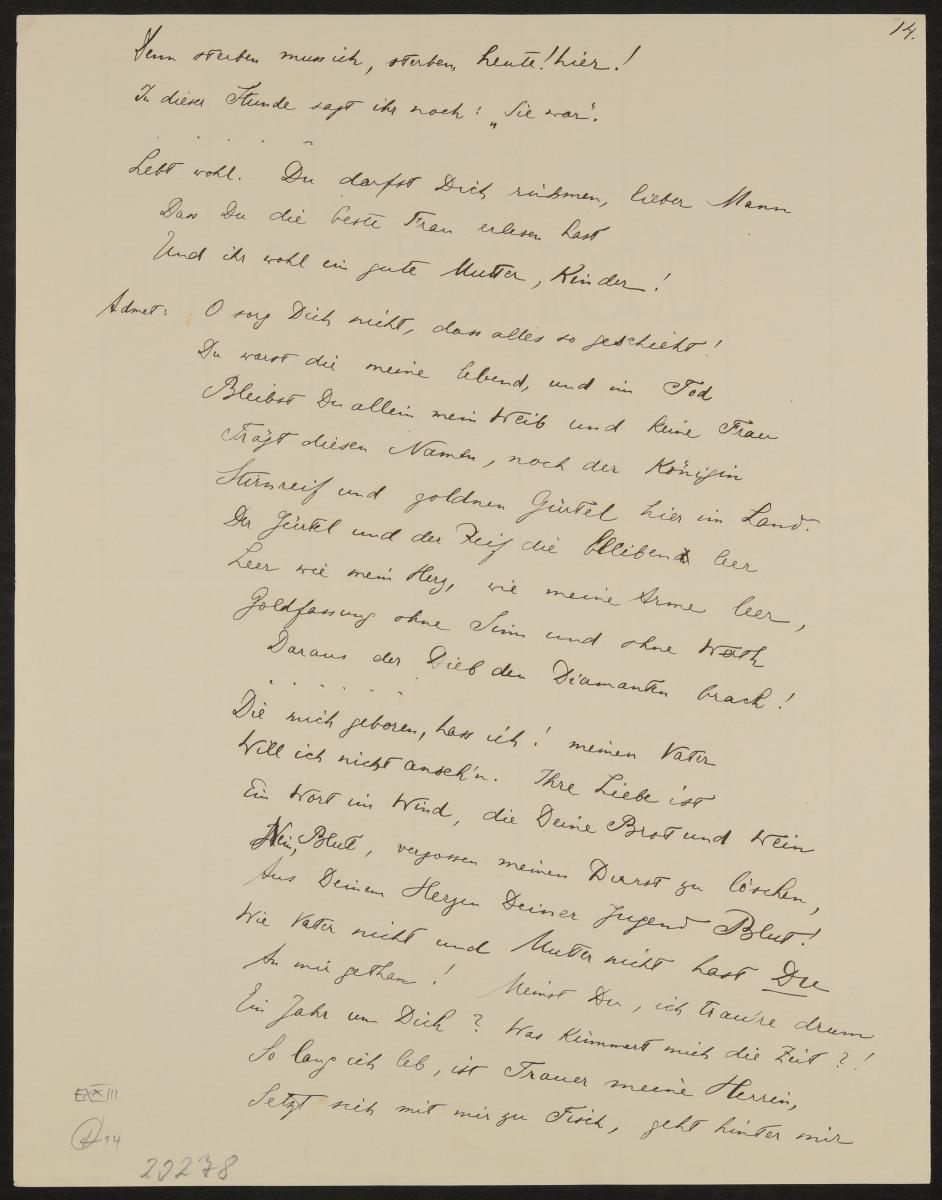 14.
Denn sterben muss ich, sterben, heute! hier!
In dieser Stunde sagt ihr noch: „Sie war“.
. . . . .
Lebt wohl. Du darfst Dich rühmen, lieber Mann
Dass Du die beste Frau erlesen hast
Und ihr wohl ein gute Mutter, Kinder!
Admet: O sorg Dich nicht, dass alles so geschieht!
Du warst die meine lebend, und im Tod
Bleibst Du allein mein Weib und keine Frau
Trägt diesen Namen, noch der Königin
Stirnreif und goldnen Gürtel hier im Land.
Der Gürtel und der Reif die bleiben leer
Leer wie mein Herz, wie meine Arme leer,
Goldfassung ohne Sinn und ohne Werth
Daraus der Dieb den Diamanten brach!
. . . . . .
Die mich geboren, hass ich! meinen Vater
Will ich nicht anseh'n. Ihre Liebe ist
Ein Wort im Wind, die Deine Brot und Wein
Nein, Blut, vergossen meinen Durst zu löschen,
Aus Deinem Herzen Deiner Jugend Blut!
Wie Vater nicht und Mutter nicht hast Du
An mir gethan! Meinst Du, ich traure drum
Ein Jahr um Dich? Was kümmert mich die Zeit?!
So lang ich leb, ist Trauer meine Herrin,
Setzt sich mit mir zu Tisch, geht hinter mir
14
20278